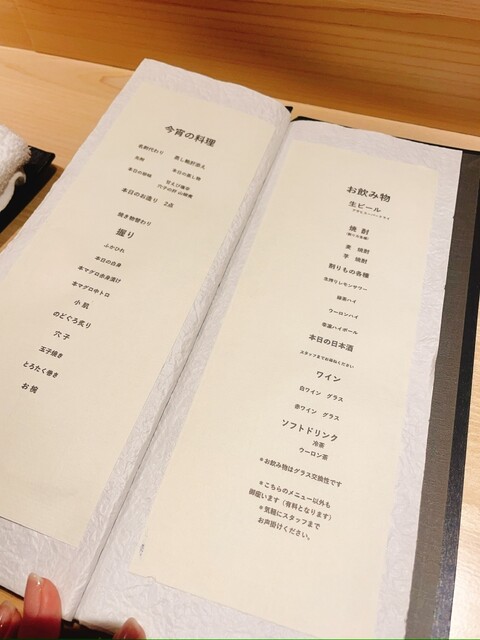 今宵の料理
名刺代わり 蒸し鮑肝添え
先附 本日の蒸し物
本日の珍味
本日のお造り 2点
焼き物替わり
握り
ふかひれ
本日の白身
本マグロ赤身漬け
本マグロ中トロ
小肌
のどぐろ炙り
穴子
玉子焼き
とろたく巻き
お椀
お飲み物
生ビール
アサヒスーパードライ
焼酎
麦 焼酎
芋 焼酎
割りもの各種
生搾りレモンサワー
緑茶ハイ
ウーロンハイ
本日の日本酒
スタッフまでお尋ねください
ワイン
白ワイン グラス
赤ワイン グラス
ソフトドリンク
冷茶
ウーロン茶
*お飲み物はグラス交換性です
*こちらのメニュー以外も
御座います（有料となります）
*気軽にスタッフまで
お声掛けください。